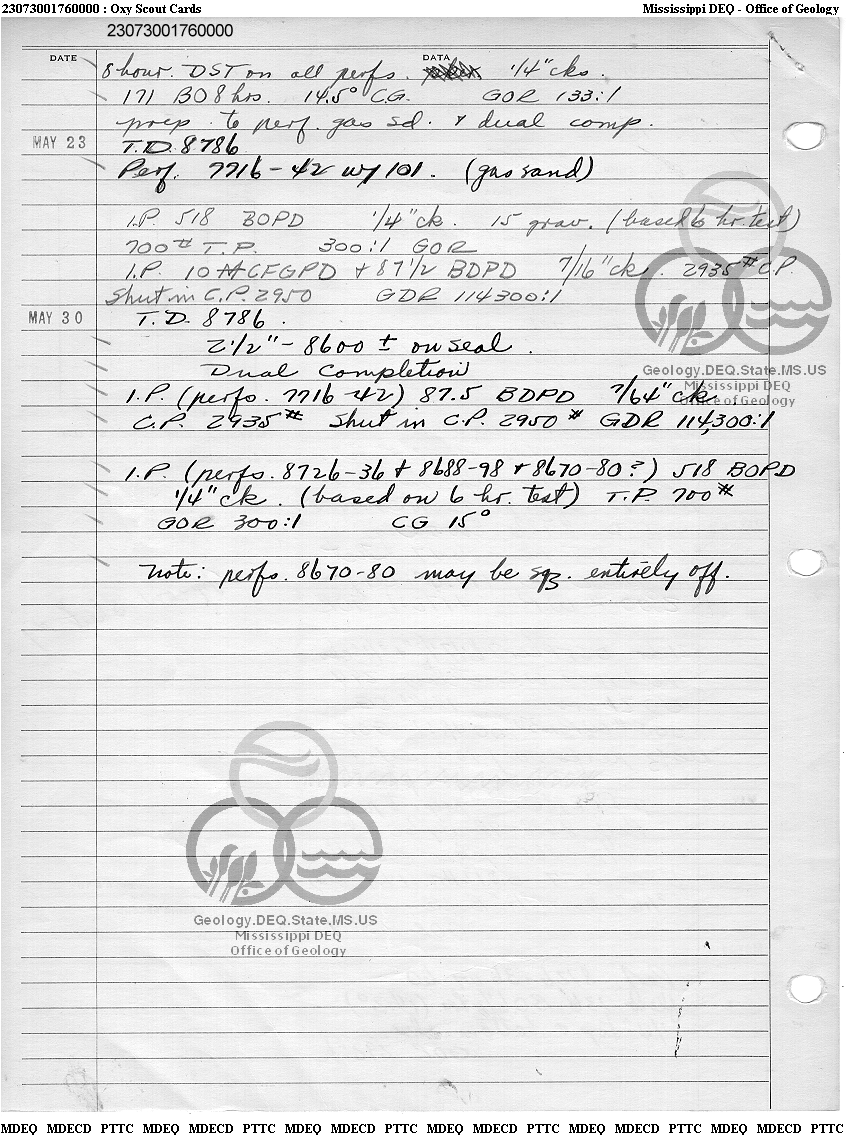 23073001760000 : Oxy Scout Cards Mississippi DEQ - Office of Geology
23073001760000
DATE DATA
8 hour. DST on all perfs. 1/4" cks.
171 BO 8 hrs. 14.5° C.G. GOR 133:1
prep. to perf. gas sd. & dual comp.
MAY 23 T.D. 8786
Perf. 7716-42 w/ 101. (gas sand)
I.P. 518 BOPD 1/4" ck. 15 grav. (based 6 hr. test)
700# T.P. 300:1 GOR
I.P. 10 MCFGPD + 87 1/2 BDPD 7/16" ck. 2935# C.P.
Shut in C.P. 2950 GDR 114300:1
MAY 30 T.D. 8786.
2 1/2" - 8600 ± on seal.
Dual Completion
I.P. (perfs. 7716-42) 87.5 BDPD 7/64" ck
C.P. 2935# Shut in C.P. 2950# GDR 114,300:1
I.P. (perfs. 8726-36 + 8688-98 + 8670-80?) 518 BOPD
1/4" ck. (based on 6 hr. test) T.P. 700#
GOR 300:1 CG 15°
Note: perfs. 8670-80 may be sqz. entirely off.
Geology.DEQ.State.MS.US
Mississippi DEQ
Office of Geology
Geology.DEQ.State.MS.US
Mississippi DEQ
Office of Geology
MDEQ MDECD PTTC MDEQ MDECD PTTC MDEQ MDECD PTTC MDEQ MDECD PTTC MDEQ MDECD PTTC MDEQ MDECD PTTC